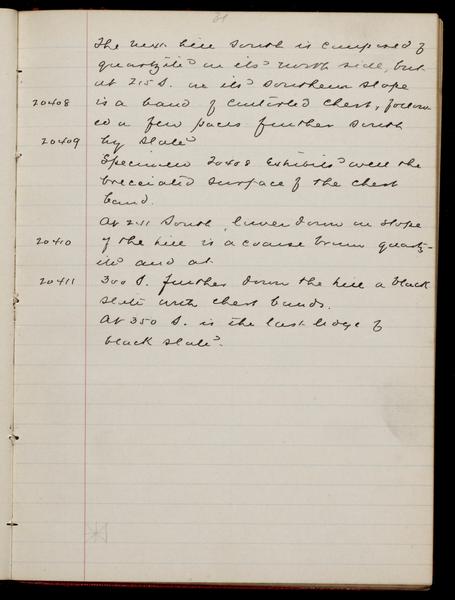 31
The next hill south is composed of
quartzite on its north side, but
at 215 S. on its southern slope
20408 is a band of contorted chert, follow
ed a few paces further south
20409 by slate
Specimen 20408 exhibits well the
brecciated surface of the chert
band.
At 211 South, lower down on slope
20410 of the hill is a coarse brown quartz-
ite and at
20411 300 S. further down the hill a black
slate with chert bands.
At 350 S. is the last ledge of
black slate.